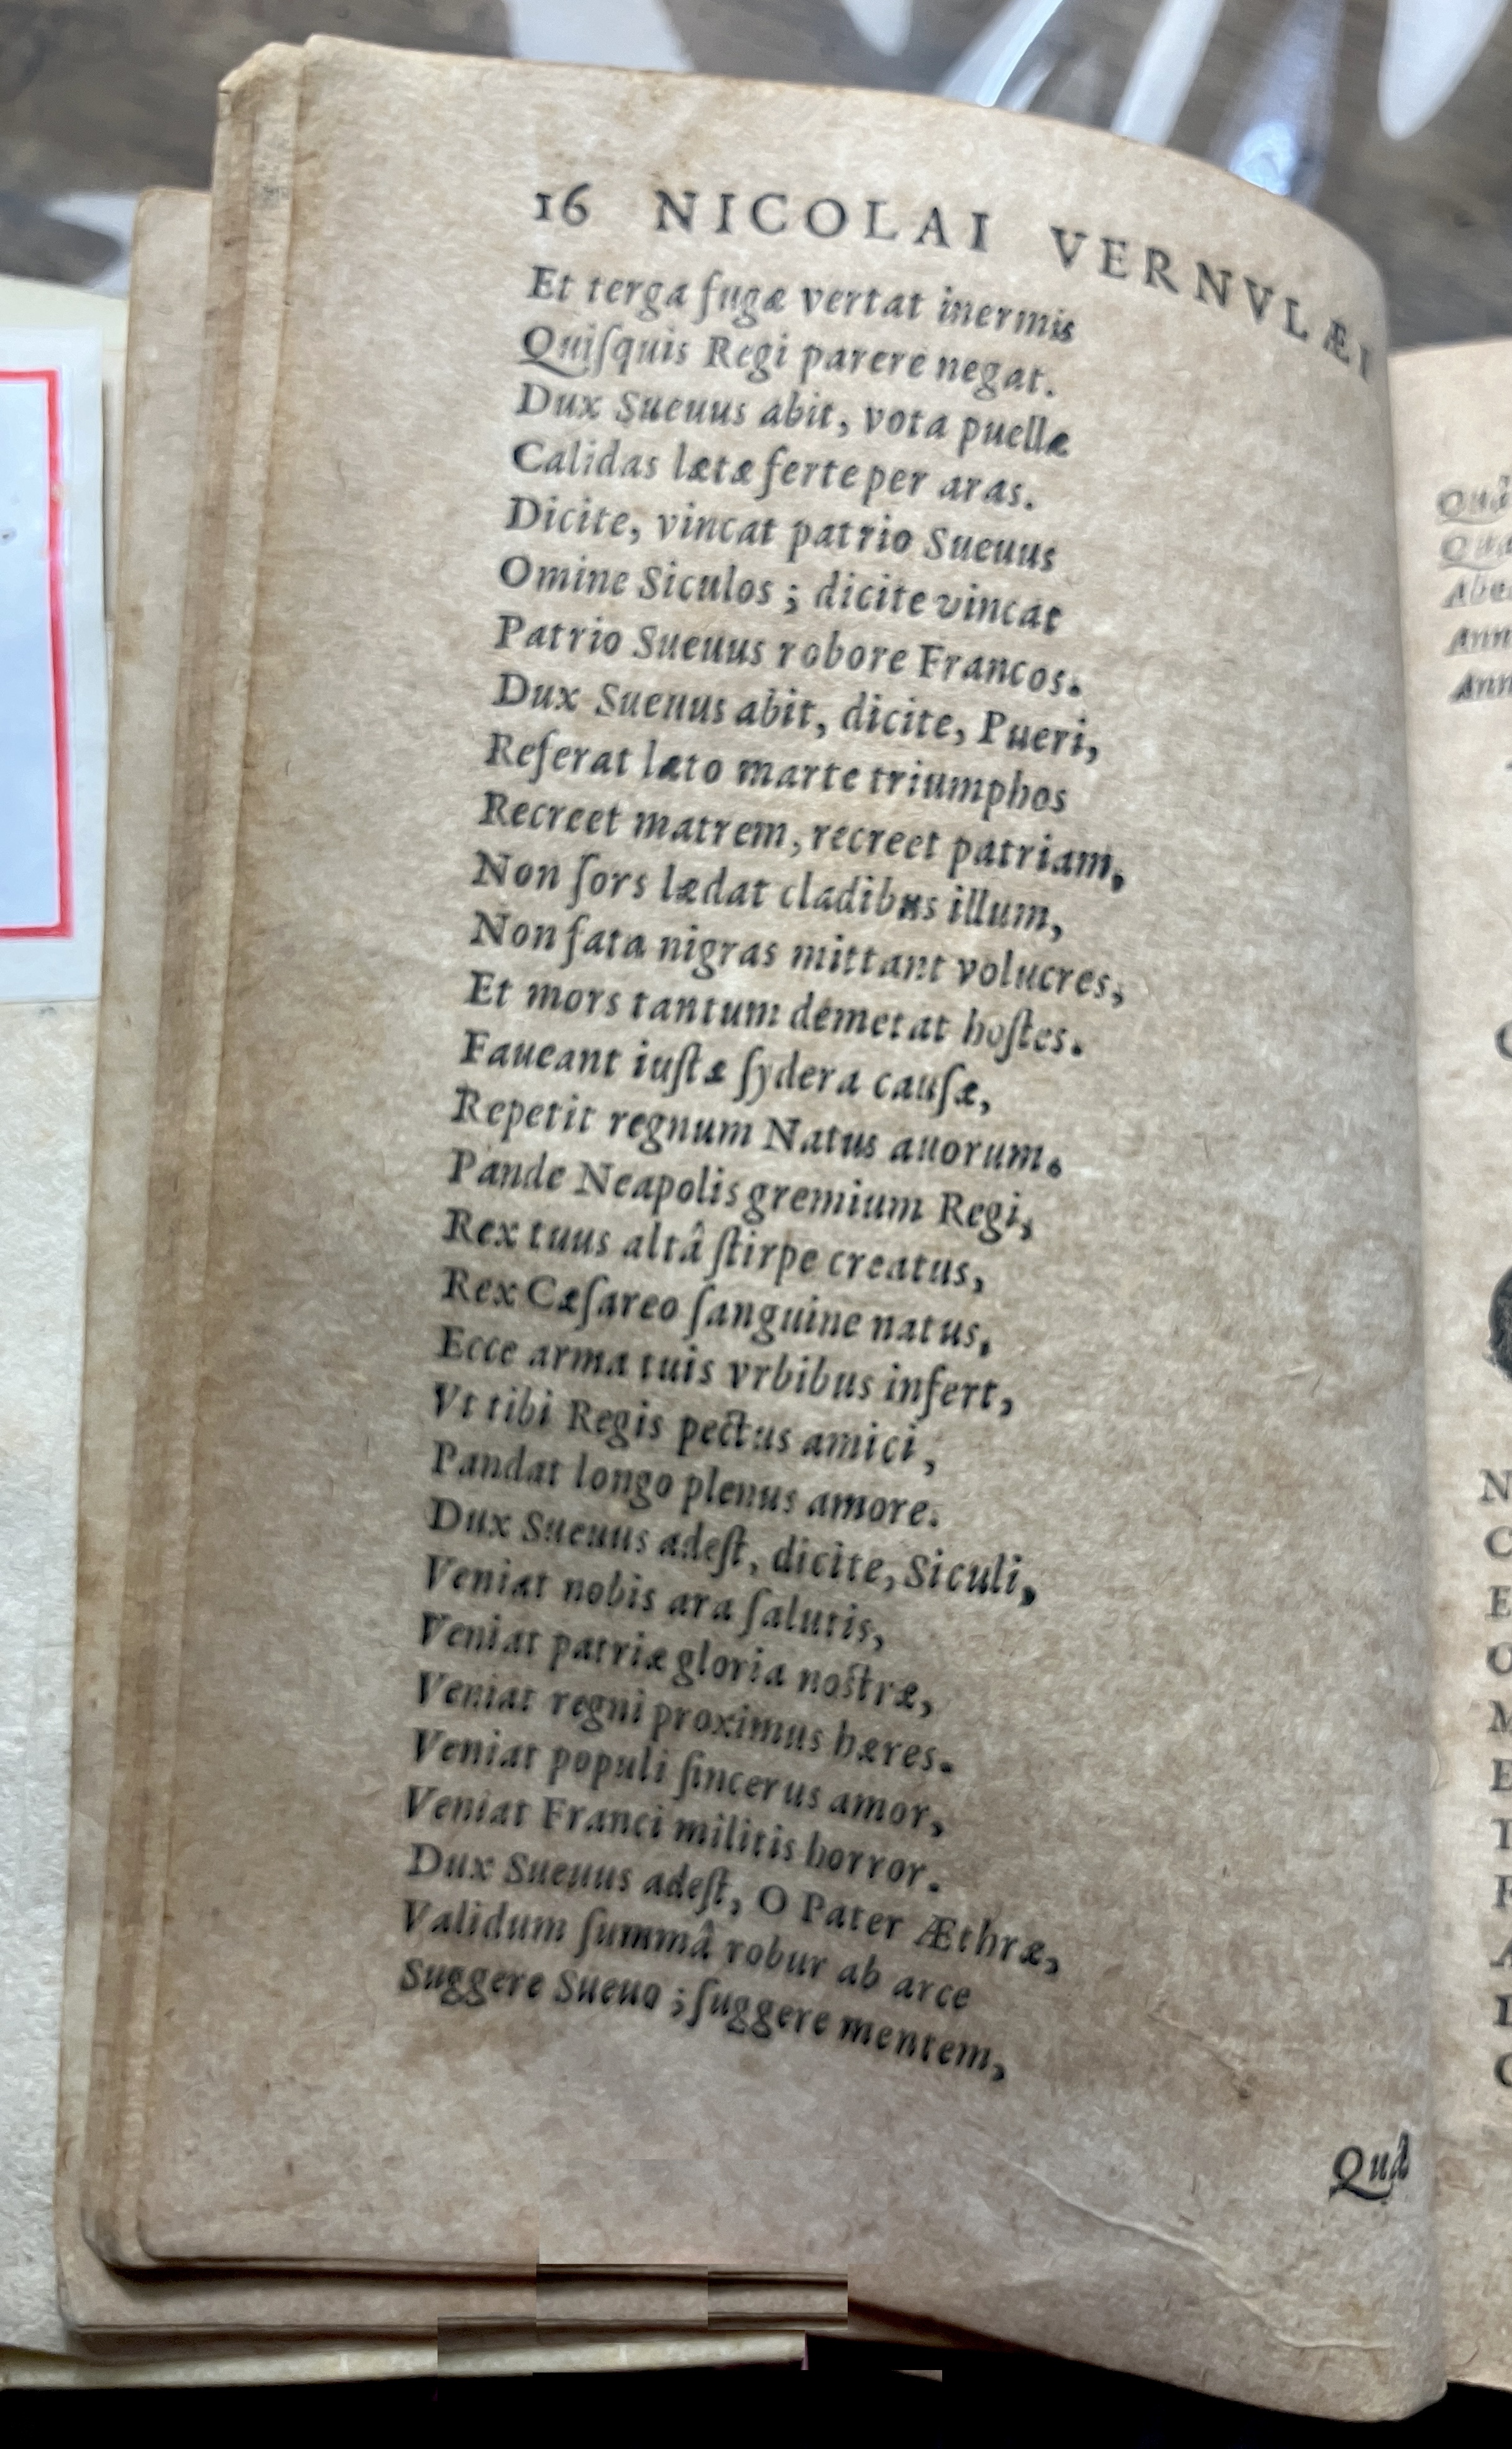 16 NICOLAI VERNVLÆI
Et terga fugæ vertat inermis
Quiſquis Regi parere negat.
Dux Sueuus abit, vota puellæ
Calidas lætæ ferte per aras.
Dicite, vincat patrio Sueuus
Omine Siculos ; dicite vincat
Patrio Sueuus robore Francos.
Dux Sueuus abit, dicite, Pueri,
Referat læto marte triumphos
Recreet matrem, recreet patriam,
Non ſors lædat cladibus illum,
Non fata nigras mittant volucres,
Et mors tantum demetat hoſtes.
Faueant iuſtæ ſydera cauſæ,
Repetit regnum Natus auorum.
Pande Neapolis gremium Regi,
Rex tuus altâ ſtirpe creatus,
Rex Cæſareo ſanguine natus,
Ecce arma tuis vrbibus infert,
Vt tibi Regis pectus amici,
Pandat longo plenus amore.
Dux Sueuus adeſt, dicite, Siculi,
Veniat nobis ara ſalutis,
Veniat patriæ gloria noſtræ,
Veniat regni proximus hæres.
Veniat populi ſincerus amor,
Veniat Franci militis horror.
Dux Sueuus adeſt, O Pater Æthræ,
Validum ſummâ robur ab arce
Suggere Sueuo ; ſuggere mentem,
Quâ